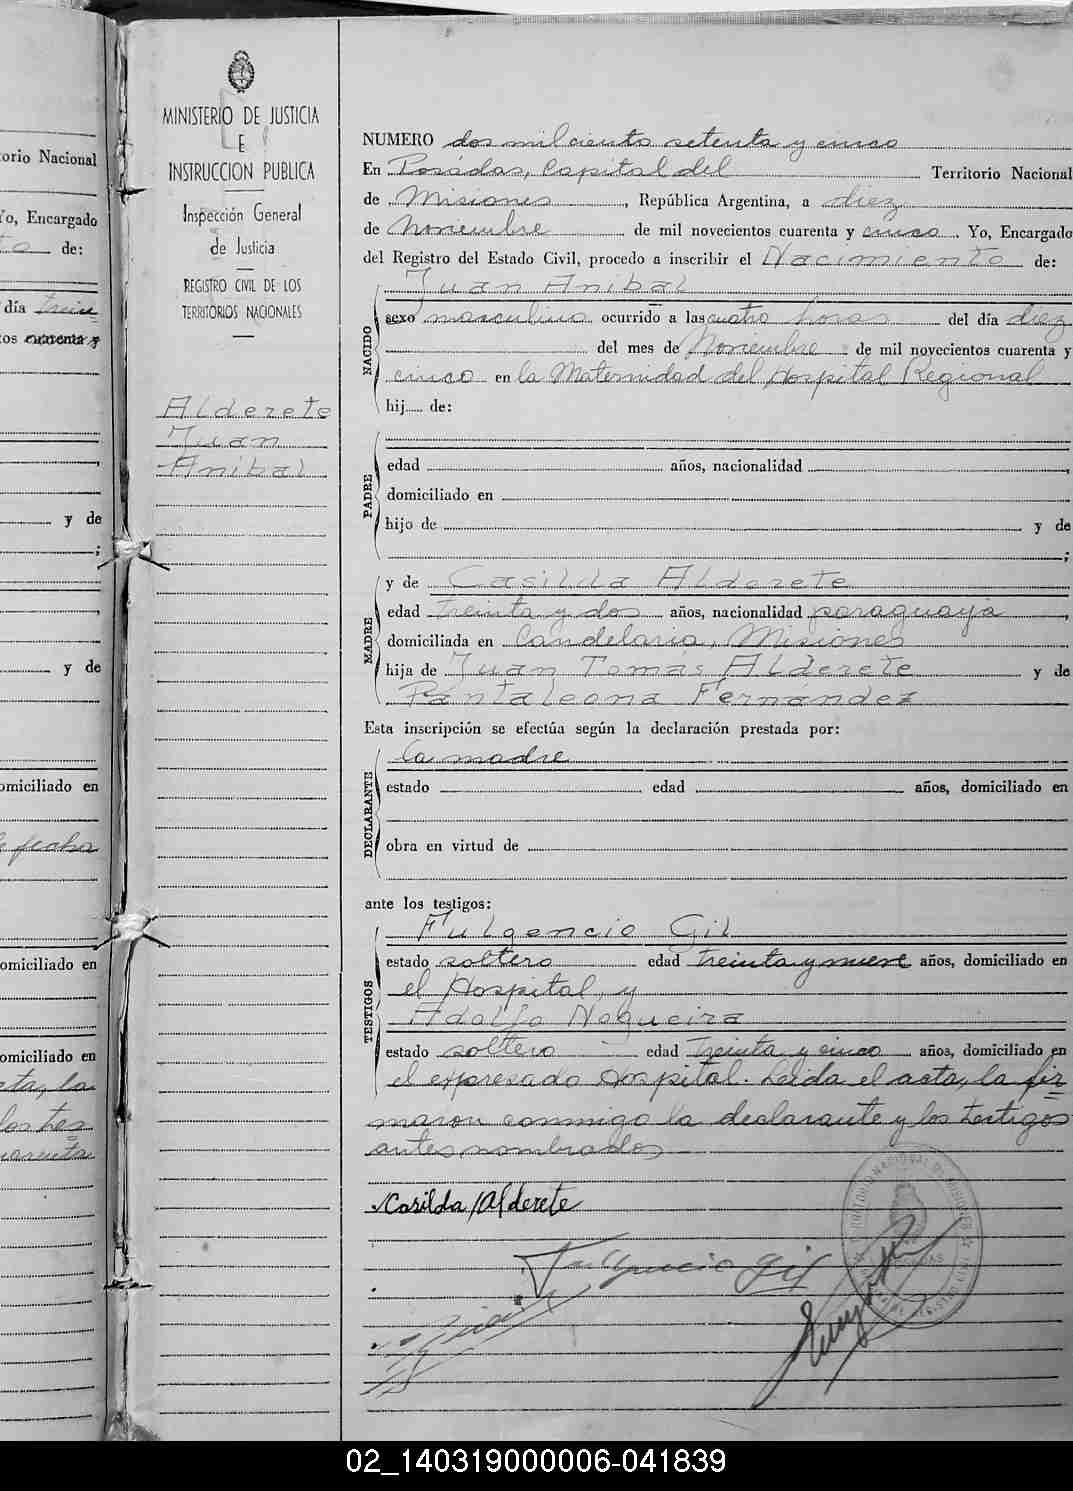 orio Nacional
Yo, Encargado
de:
día trein
os cuarenta y
y de
;
y de
omiciliado en
fecha
omiciliado en
omiciliado en
cta, la
los tes
uarenta
MINISTERIO DE JUSTICIA
E
INSTRUCCION PUBLICA
Inspección General
de Justicia
REGISTRO CIVIL DE LOS
TERRITORIOS NACIONALES
Alderete
Juan
Anibal
NUMERO dos mil ciento setenta y cinco
En Posadas, Capital del Territorio Nacional
de Misiones, República Argentina, a diez
de Noviembre de mil novecientos cuarenta y cinco. Yo, Encargado
del Registro del Estado Civil, procedo a inscribir el Nacimiento de:
Juan Anibal
NACIDO
sexo masculino ocurrido a las cuatro horas del día diez
del mes de Noviembre de mil novecientos cuarenta y
cinco en la Maternidad del Hospital Regional
hij de:
PADRE
edad años, nacionalidad ,
domiciliado en
hijo de y de
;
MADRE
y de Casilda Alderete
edad treinta y dos años, nacionalidad paraguaya,
domiciliada en Candelaria, Misiones
hija de Juan Tomás Alderete y de
Pantaleona Fernández
Esta inscripción se efectúa según la declaración prestada por:
la madre
DECLARANTE
estado edad años, domiciliado en
obra en virtud de
ante los testigos:
Fulgencio Gil
TESTIGOS
estado soltero edad treinta y nueve años, domiciliado en
el Hospital, y
Adolfo Nogueira
estado soltero edad treinta y cinco años, domiciliado en
el expresado Hospital. Leída el acta, la fir
maron conmigo la declarante y los testigos
antes nombrados
Casilda Alderete
Fulgencio Gil
02_140319000006-041839